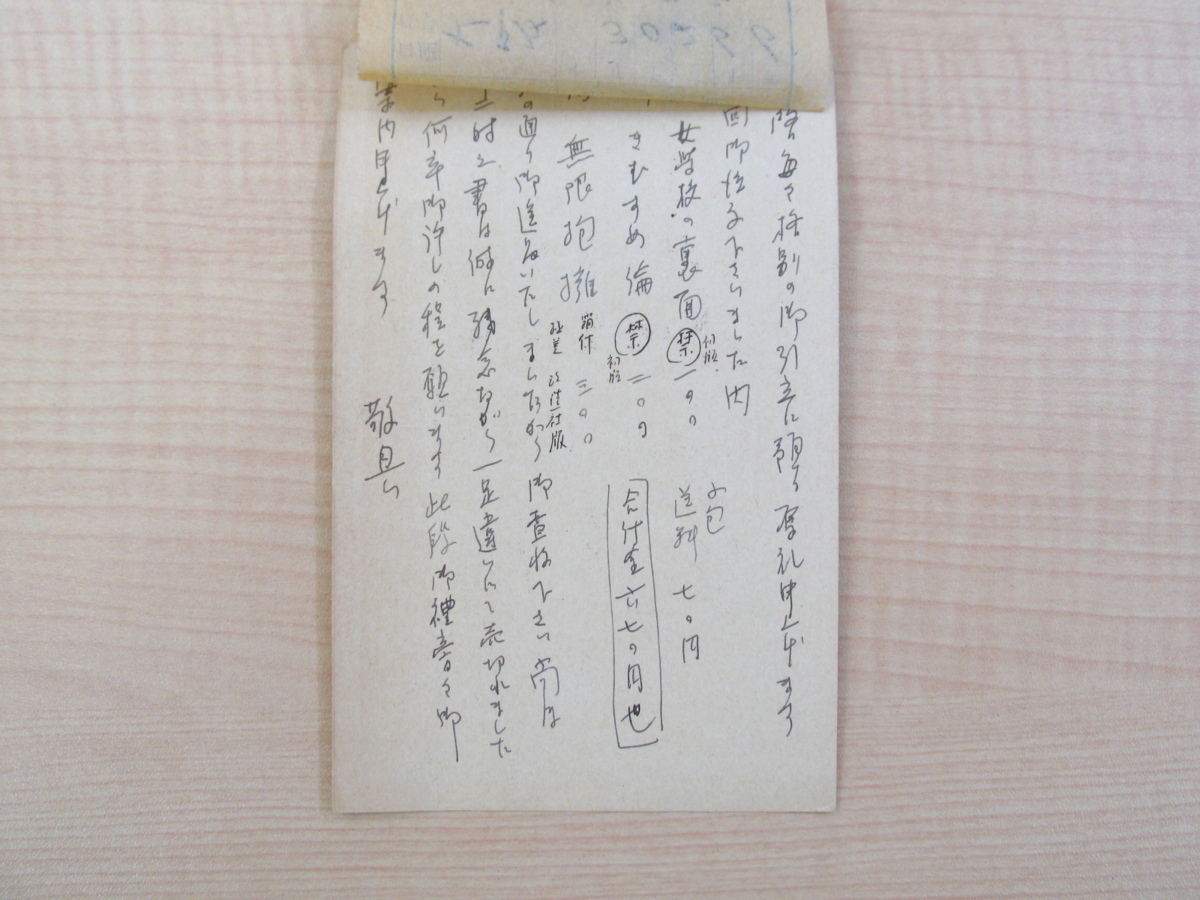 陰毎々格別の御引立に預り厚礼申上げます
回御注文下さいました内
女学校の裏面 禁 初版 一〇〇
きむすめ倫 禁 初版 二〇〇
無限抱擁 三〇〇
改造社版
小包
送料 七〇円
合計金六七〇円也
の通り御送本いたしましたから御査収下さい尚
書は残念ながら一足違いにて売切れました
何卒御許しの程を願います 此段御禮旁々御
案内申上げます
敬具
30266